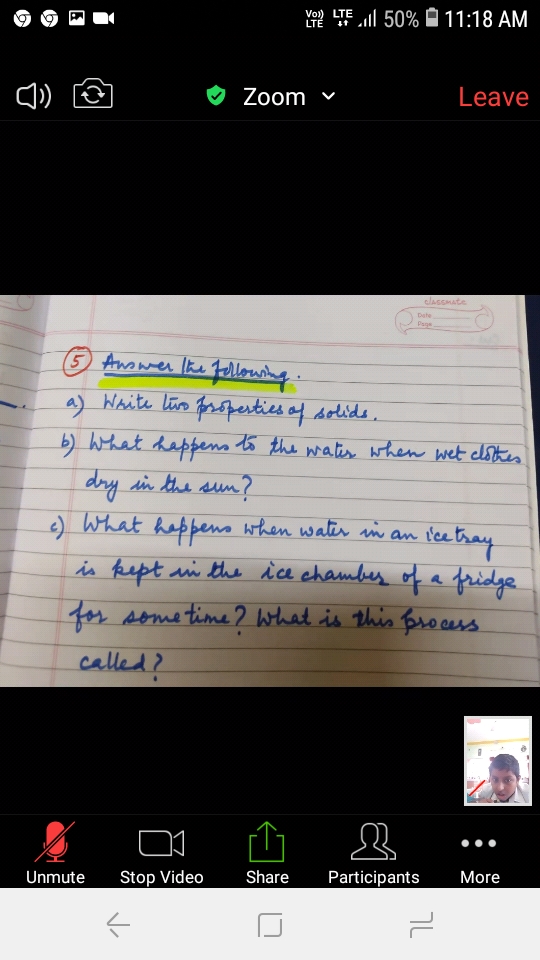 Vo)) LTE LTE 50% 11:18 AM
Zoom Leave
classmate
Date
Page
5 Answer the following.
a) Write two properties of solids.
b) What happens to the water when wet clothes
dry in the sun?
c) What happens when water in an ice tray
is kept in the ice chamber of a fridge
for sometime? What is this process
called?
Unmute Stop Video Share Participants More